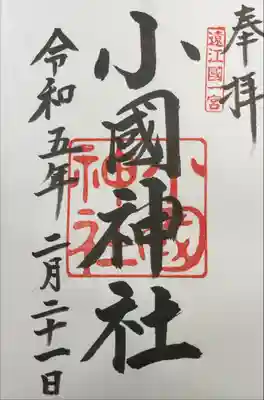 奉拝
遠江國一宮
小國神社
小國神社
令和五年二月二十一日